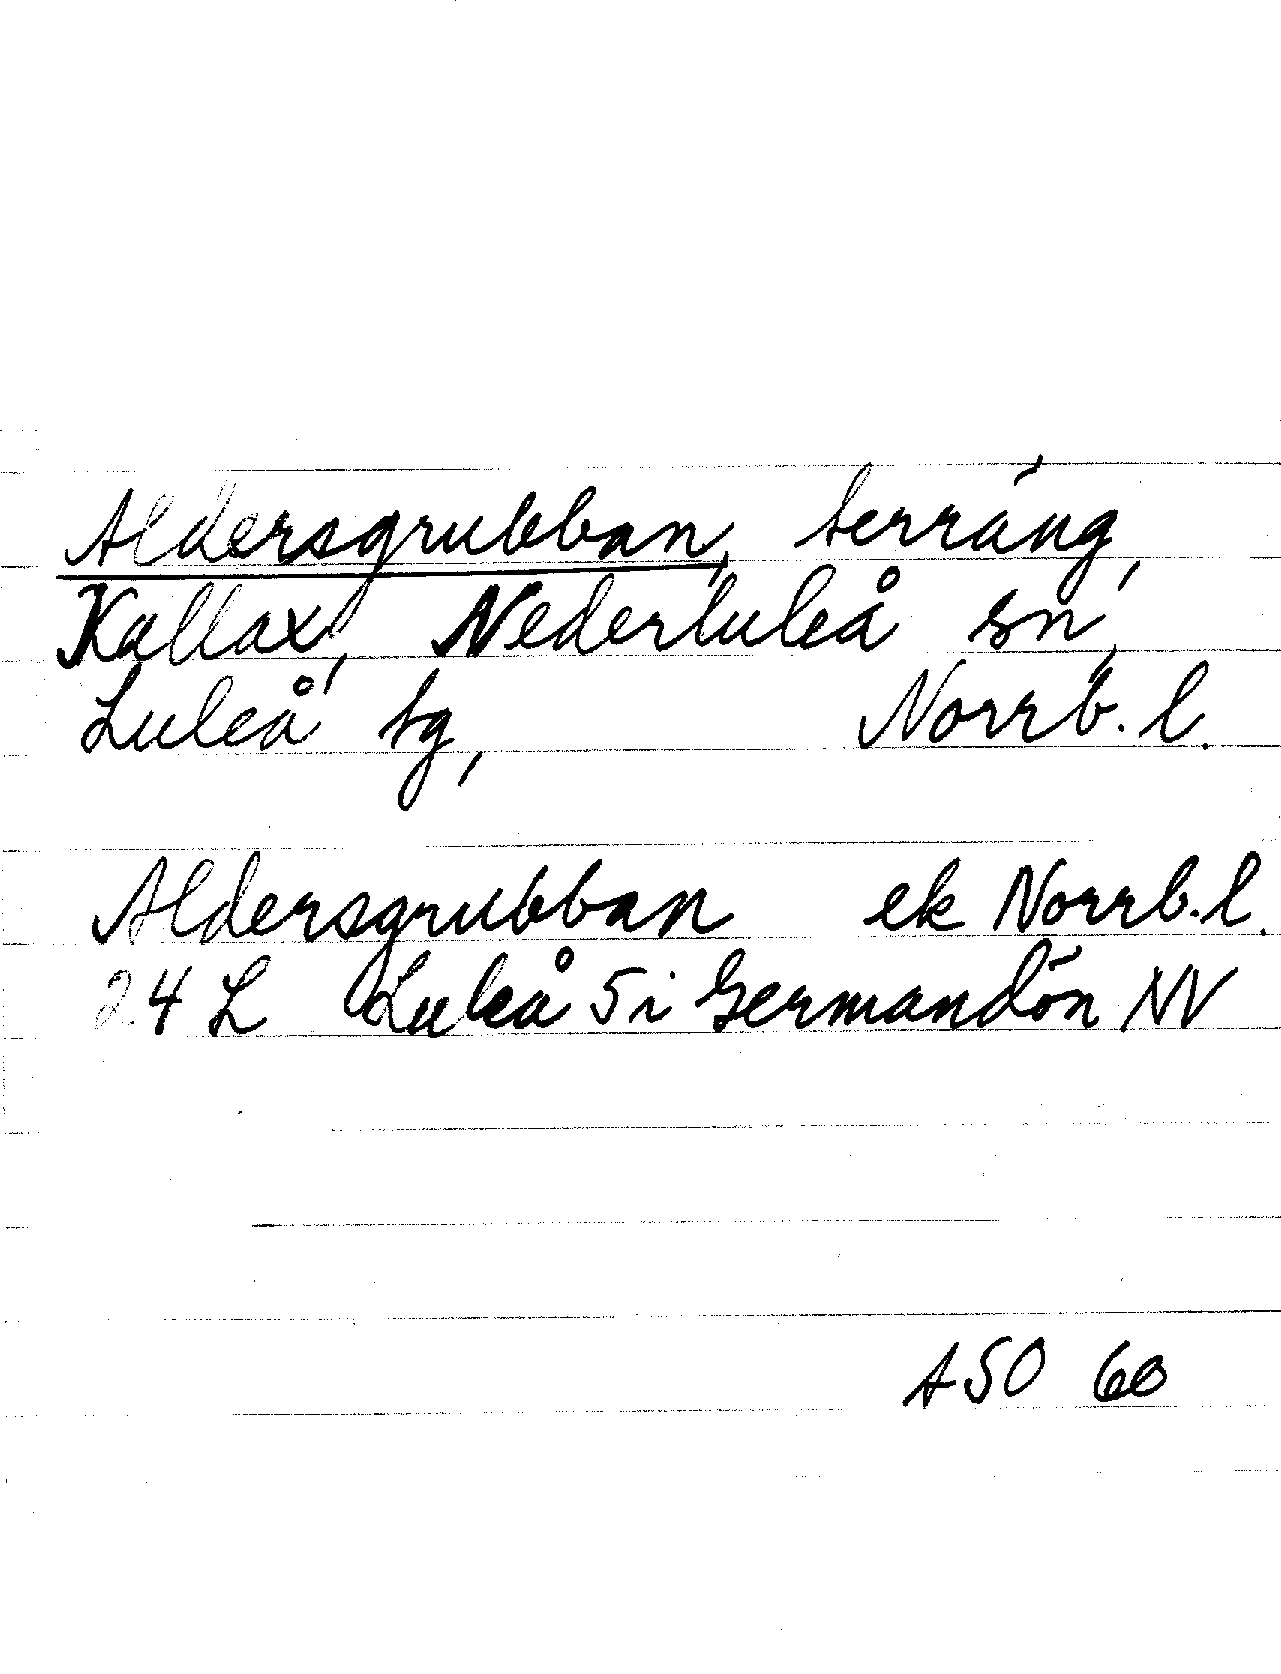 Aldersgrubban, terräng,
Kallax, Nederluleå sn,
Luleå tg, Norrb. l.
Aldersgrubban ek Norrb. l.
24 L Luleå 5i Germandön NV
ASO 60